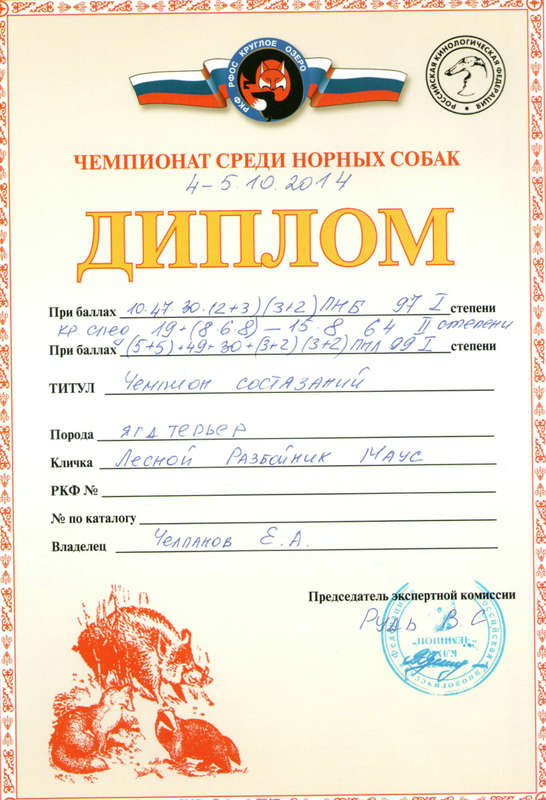 РКФ РФОС КРУГЛОЕ ОЗЕРО
РОССИЙСКАЯ КИНОЛОГИЧЕСКАЯ ФЕДЕРАЦИЯ
ЧЕМПИОНАТ СРЕДИ НОРНЫХ СОБАК
4-5.10.2014
ДИПЛОМ
При баллах 10.47 30.(2+3)(3+2) ПНБ 97 I степени
кр. след 19+(8.6.8) - 15.8 64 II степени
При баллах (5+5)+49+30+(3+2)(3+2) ПНЛ 99 I степени
ТИТУЛ Чемпион состязаний
Порода ягдтерьер
Кличка Лесной Разбойник Маус
РКФ №
№ по каталогу
Владелец Челпанов Е.А.
Председатель экспертной комиссии
Рудь В.С
КЛУБ
"ЧЕМПИОН"